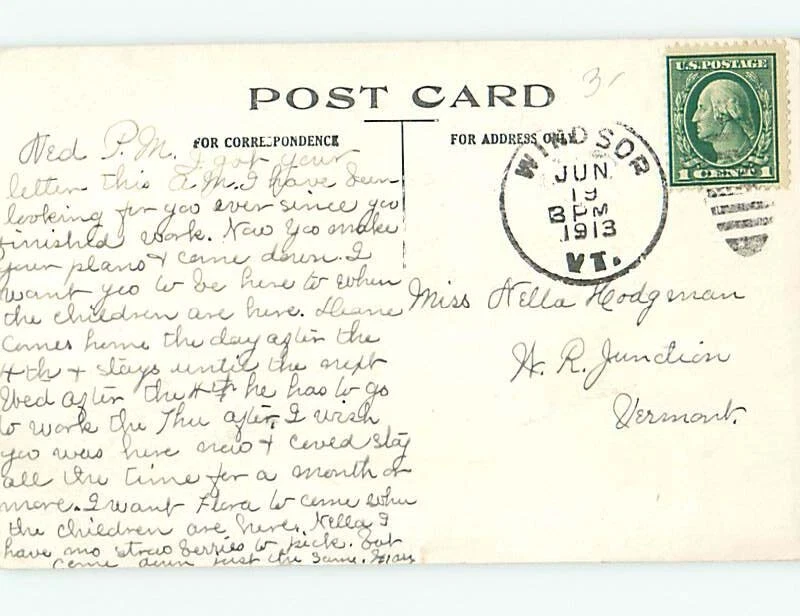 POST CARD
3
FOR CORRESPONDENCE
FOR ADDRESS ONLY
U.S. POSTAGE
1 CENT 1
WINDSOR
JUN
19
3 PM
1913
VT.
Wed P.M. I got your
letter this A.M. I have been
looking for you ever since you
finished work. Now you make
your plans & come down. I
want you to be here to when
the children are here.
comes home the day after the
4th & stays until the next
Wed after the 4th he has to go
to work the Thu after. I wish
you was here now & coved stay
all the time for a month or
more. I want Flora to come when
the children are here. Nella I
have no straw berries to pick. but
come down just the same.
Miss Nella Hodgman
W. R. Junction
Vermont.